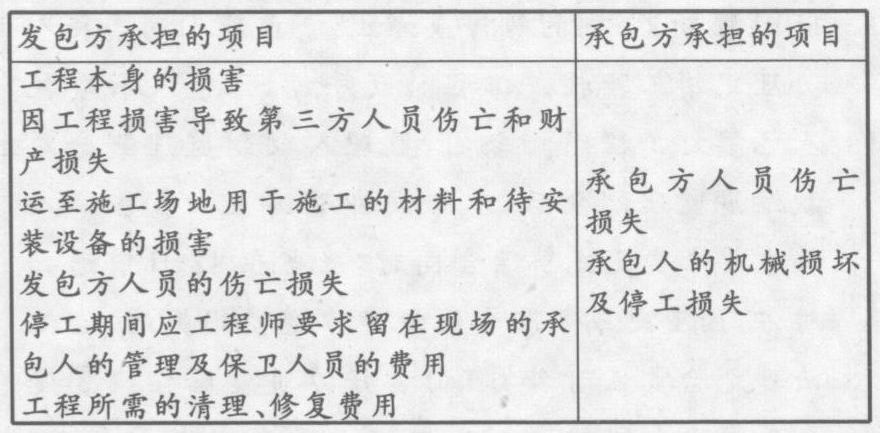 发包方承担的项目
承包方承担的项目
工程本身的损害
因工程损害导致第三方人员伤亡和财
产损失
运至施工场地用于施工的材料和待安
装设备的损害
发包方人员的伤亡损失
停工期间应工程师要求留在现场的承
包人的管理及保卫人员的费用
工程所需的清理、修复费用
承包方人员伤亡
损失
承包人的机械损坏
及停工损失